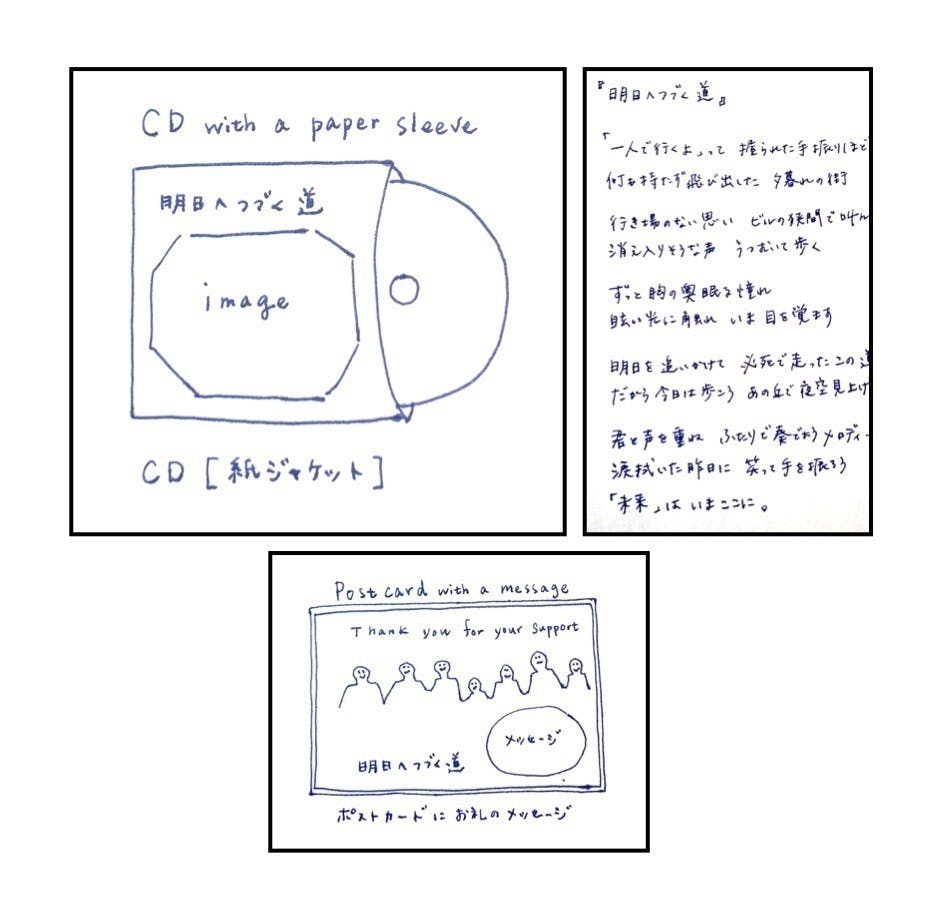 CD with a paper sleeve
明日へつづく道
image
CD [紙ジャケット]
『明日へつづく道』
「一人で行くよ」って 握られた手振りほど
何も持たず飛び出した 夕暮れの街
行き場のない思い ビルの狭間で叫ん
消え入りそうな声 うつむいて歩く
ずっと胸の奥眠る憧れ
眩い光に触れ いま目を覚ます
明日を追いかけて 必死で走ったこの道
だから今日は歩こう あの丘で夜空見上げ
君と声を重ね ふたりで奏でようメロディー
涙拭いた昨日に 笑って手を振ろう
「未来」はいまここに。
Post card with a message
Thank you for your support
メッセージ
明日へつづく道
ポストカードに お礼のメッセージ